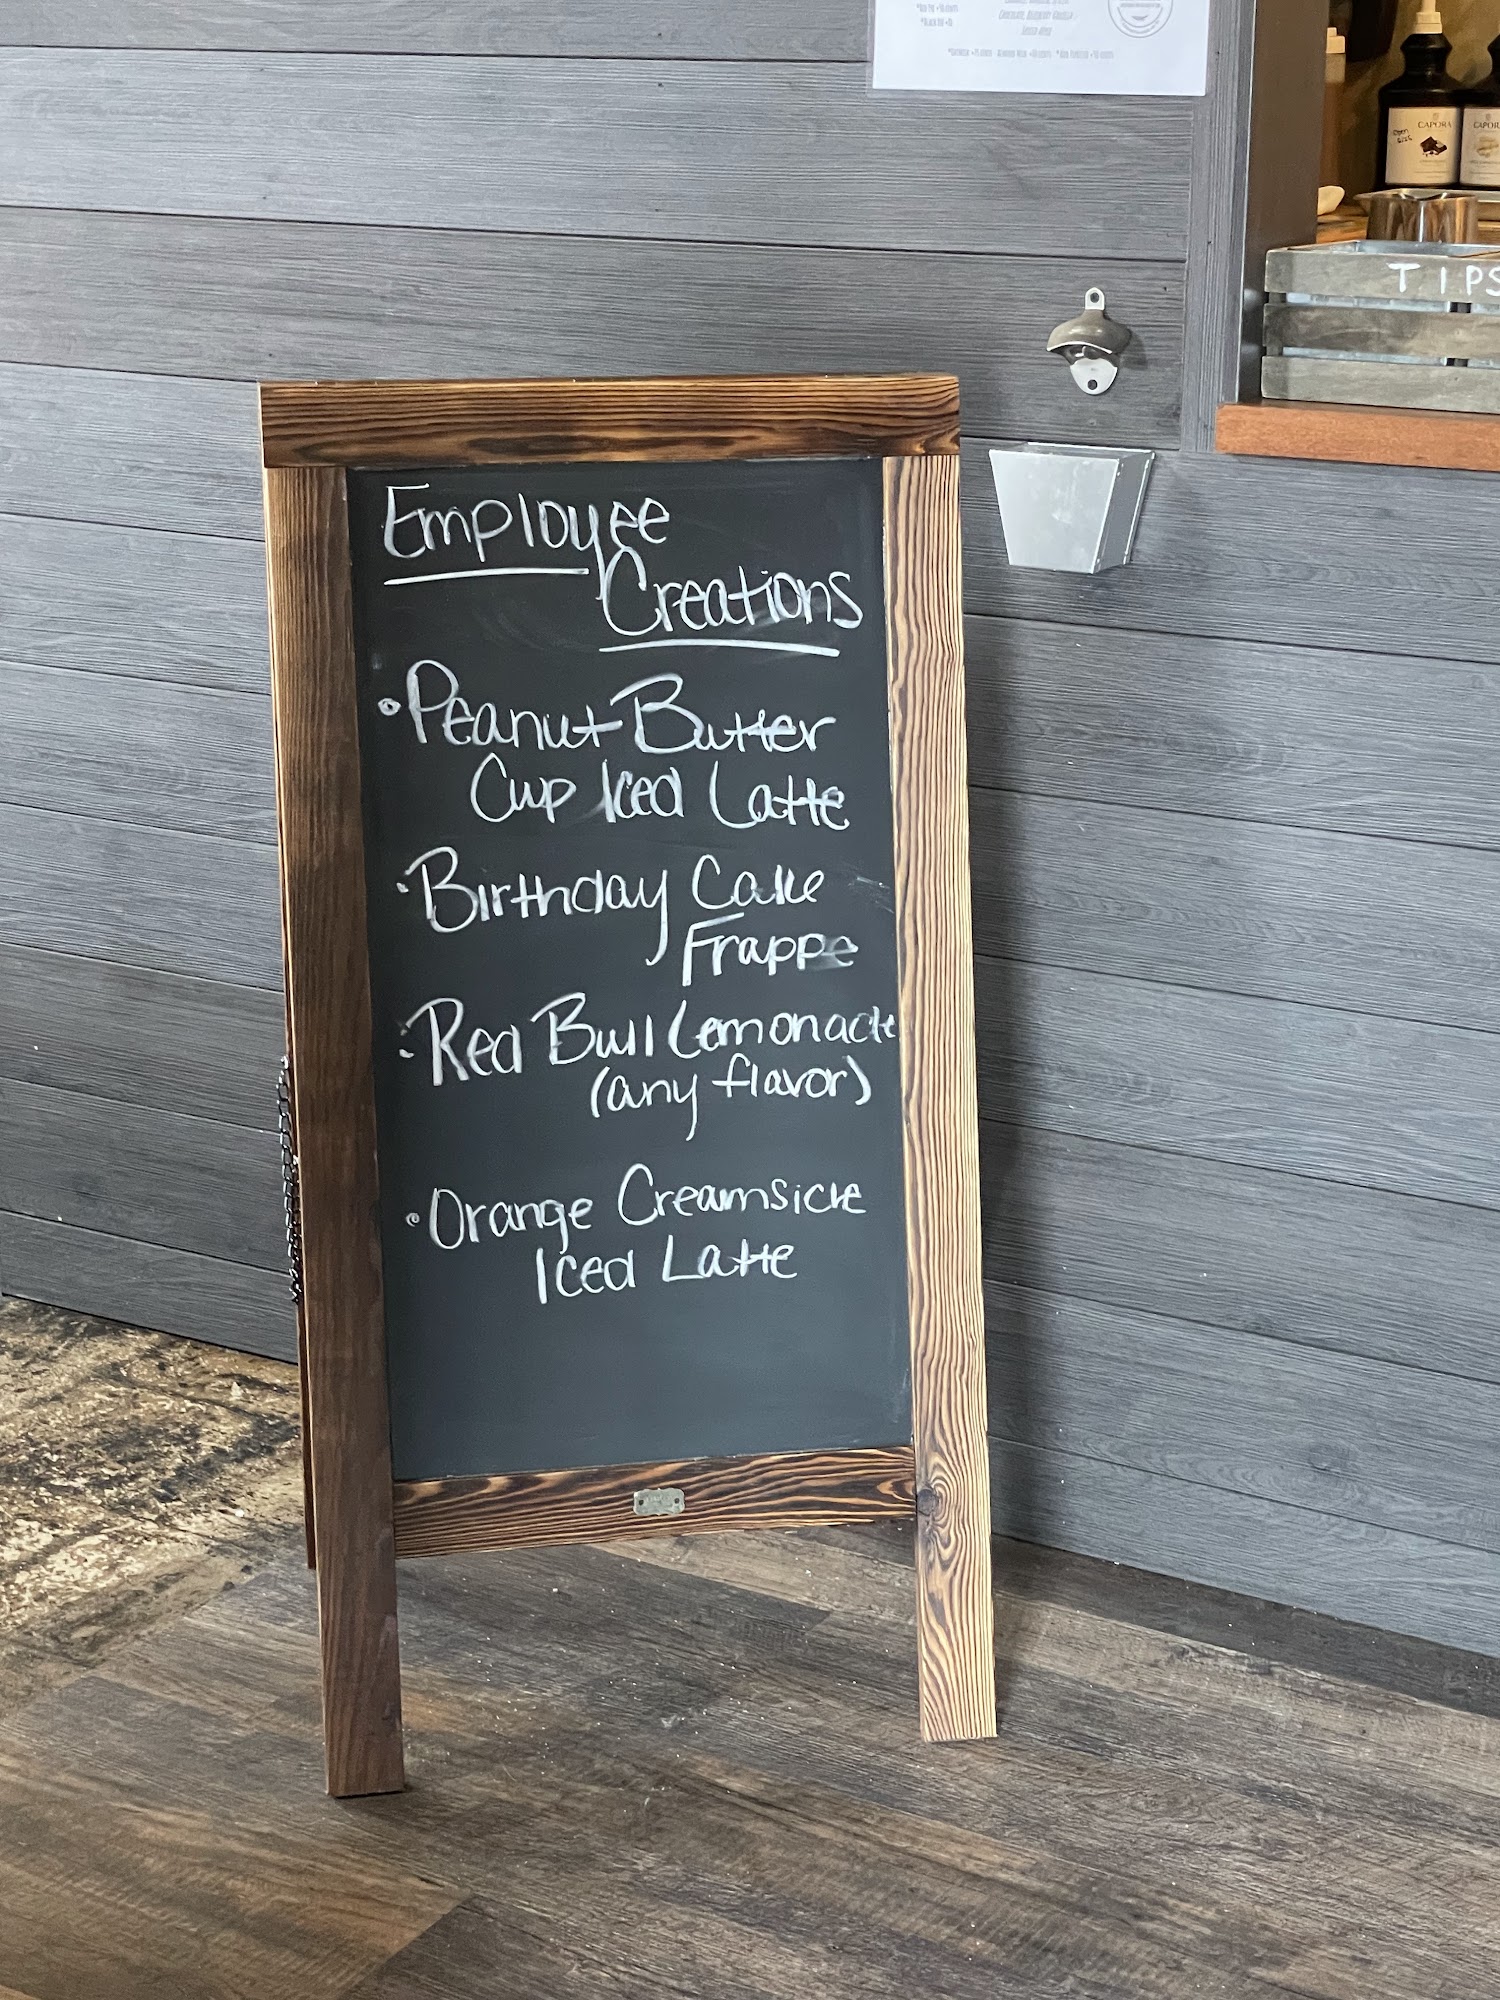 Employee
Creations
•Peanut Butter
Cup Iced Latte
•Birthday Cake
Frappe
•Red Bull Lemonade
(any flavor)
•Orange Creamsicle
Iced Latte
TIPS
CAPORA